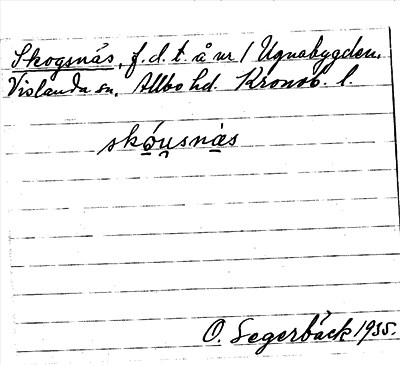 Skogsnäs, f.d.t. å nr 1 Ugnabygden,
Vislanda sn, Allbo hd. Kronob. l.
skóu̯snäs
O. Segerbäck 1935.